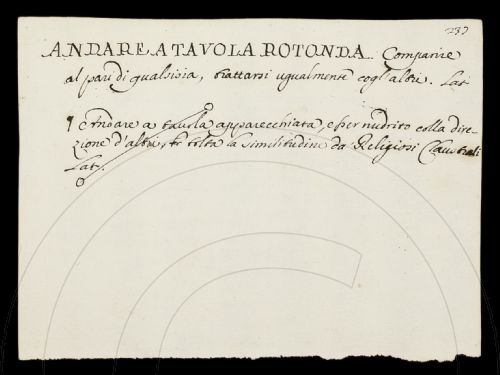 237
ANDARE A TAVOLA ROTONDA. Comparire
al pari di qualsisia, trattarsi ugualmente cogl'altri. Lat
¶ Andare a tavola apparecchiata, esser nudrito colla dire-
zione d'altri, tolta la similitudine da Religiosi Claustrali
Lat.